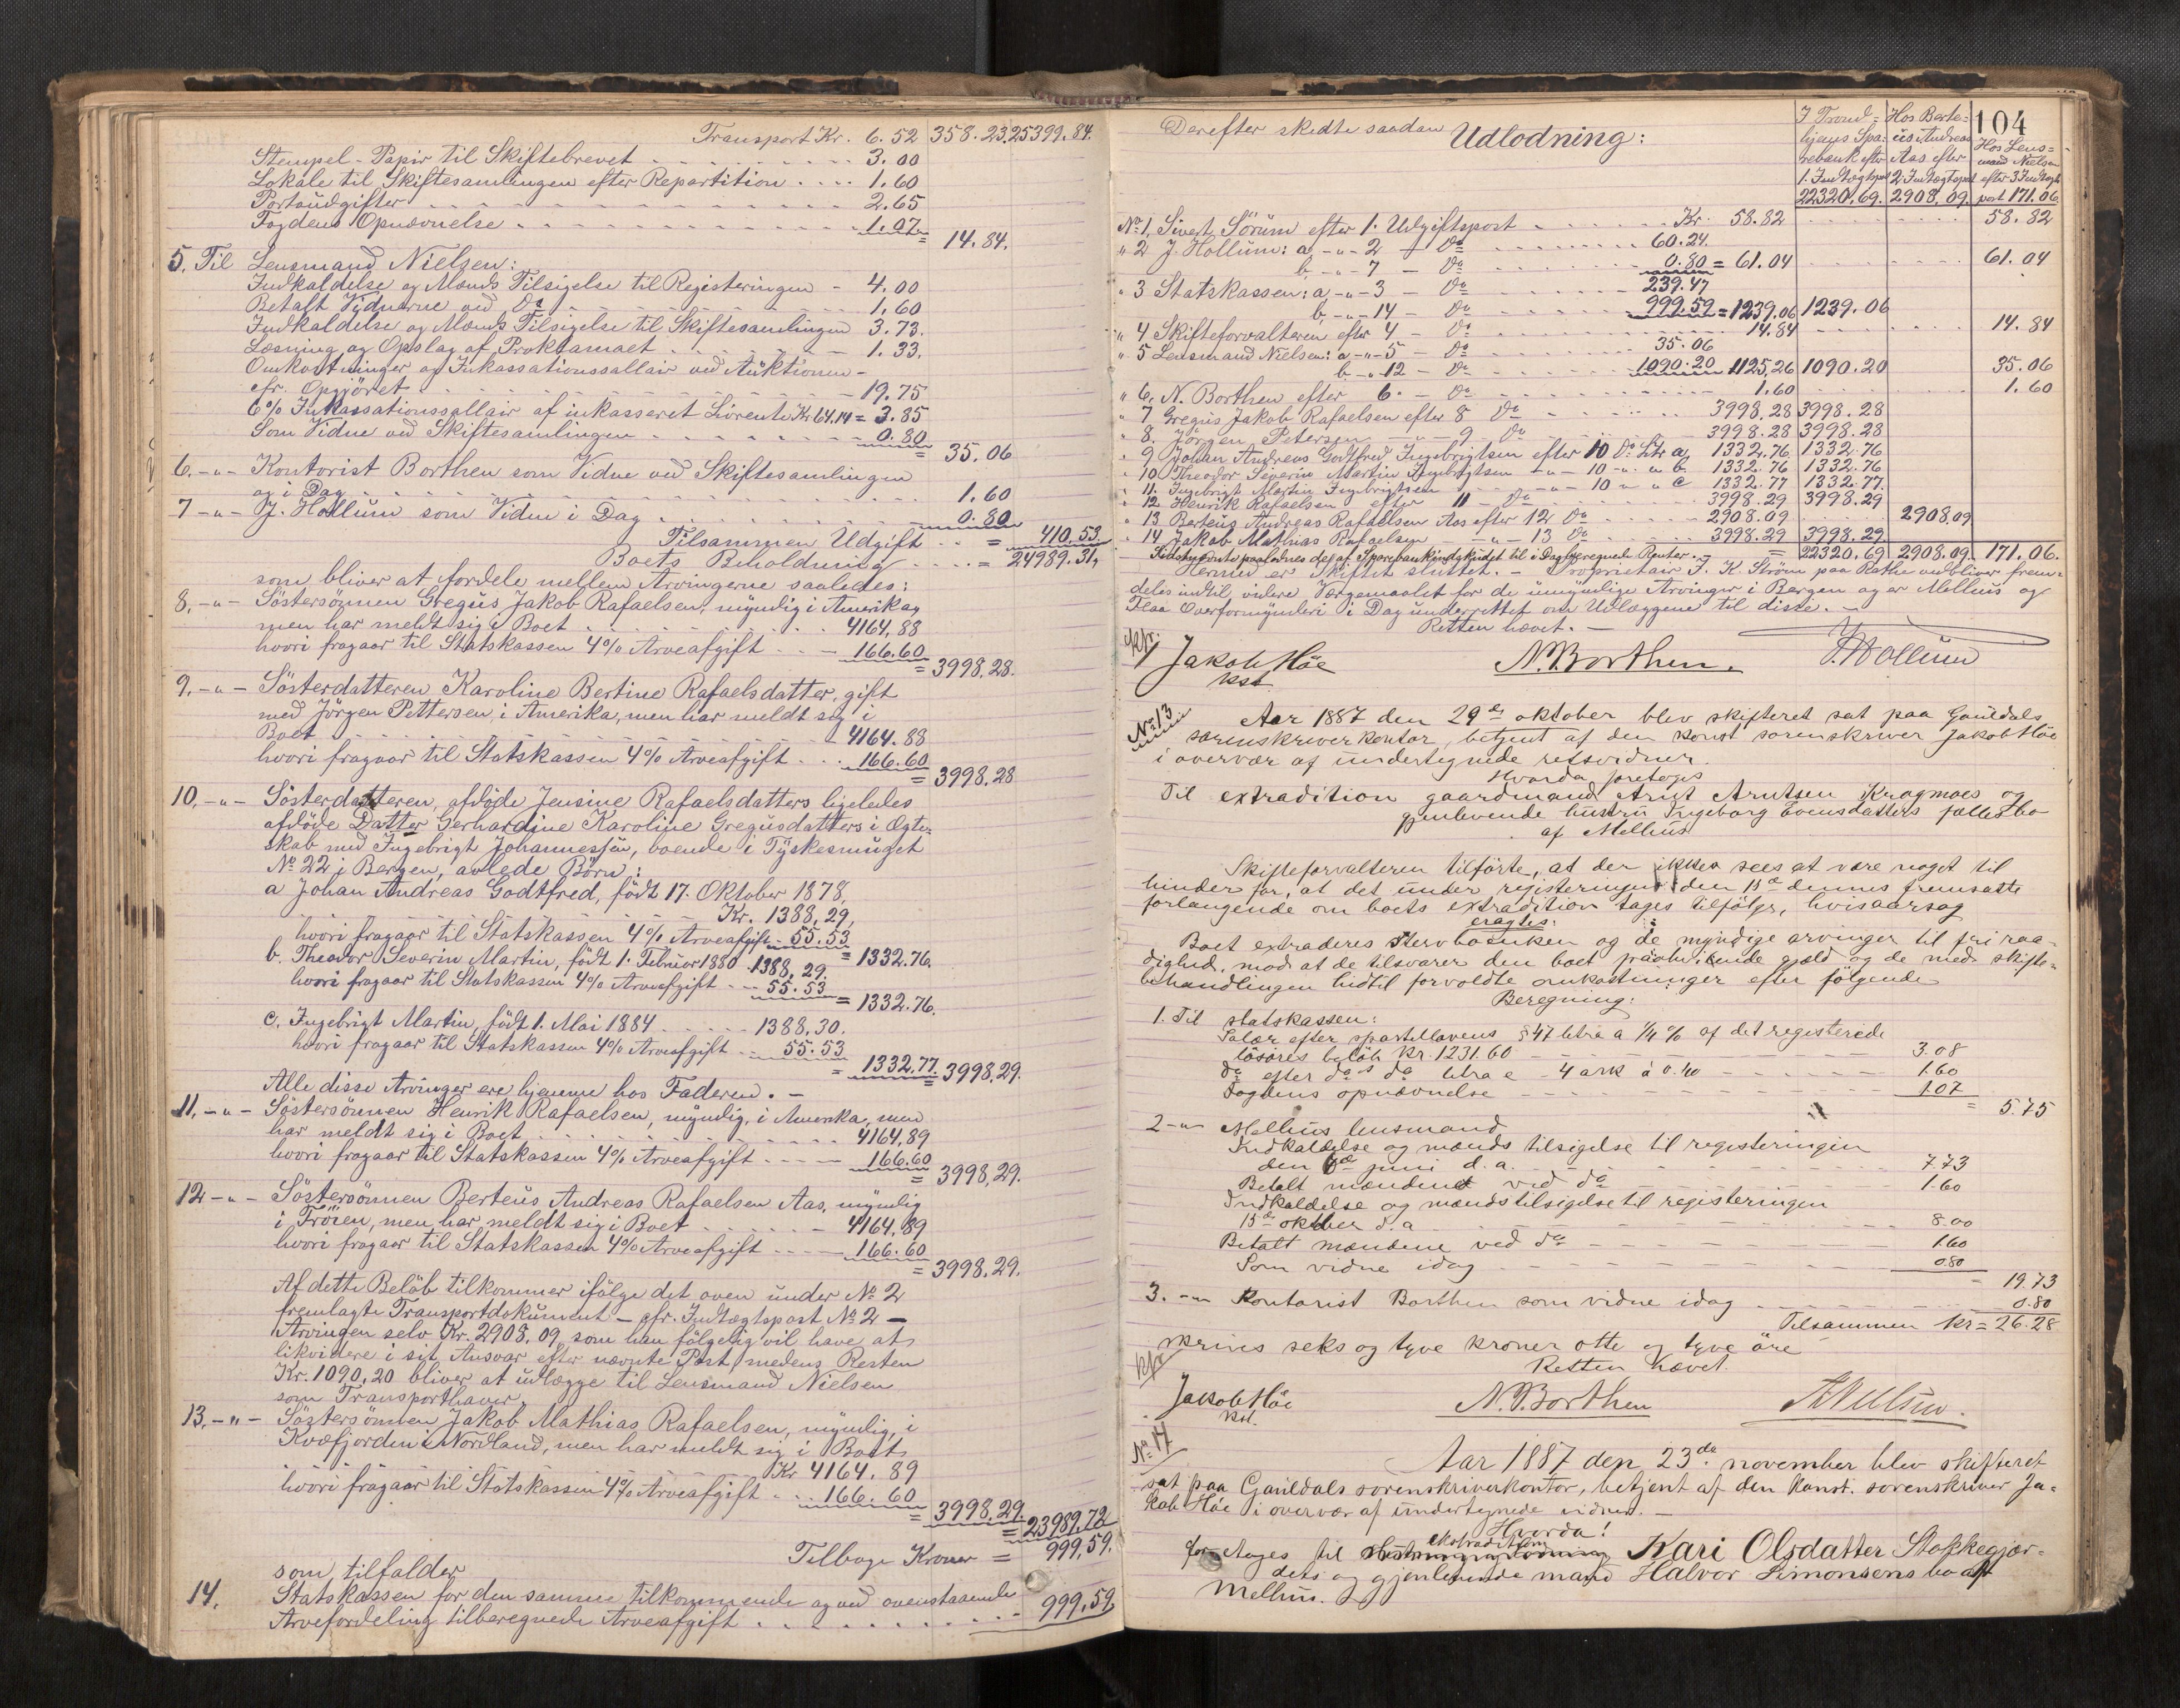 Transport Kr. 6.52 358.23. 25399.84.
Stempel-Papir til Skiftebrevet 3.00
Lokale til Skiftesamlingen efter Repartition 1.60
Portoudgifter 2.65
Fogdens Opnævnelse 1.07 = 14.84.
5. Til Lensmand Nielsen:
Indkaldelse og Mænds Tilsigelse til Registeringen - 4.00
Betalt Vidnerne ved Do 1.60
Indkaldelse og Mænds Tilsigelse til Skiftesamlingen 3.73.
Læsning og Opslag af Proklamaet 1.33.
Omkostninger og Inkassationssallair ved Auktionen -
cfr. Opgjöret 19.75
6% Inkassationssallair af inkasseret Lörente Kr 64.14 = 3.85
Som Vidne ved Skiftesamlingen 0.80 = 35.06
6. -"- Kontorist Borthen som Vidne ved Skiftesamlingen
og i Dag 1.60
7 -"- J. Hollum som Vidne i Dag 0.80
Tilsammen Udgift = 410.53.
Boets Beholdning = 24989.31,
som bliver at fordele mellem Arvingerne saaledes:
8. -"- Söstersönnen Gregus Jakob Rafaelsen, myndig i Amerika,
men har meldt sig i Boet 4164,88
hvori fragaar til Statskassen 4% Arveafgift 166.60 = 3998,28.
9. -"- Sösterdatteren Karoline Bertine Rafaelsdatter, gift
med Jörgen Pettersen i Amerika, men har meldt sig i
Boet 4164.88
hvori fragaar til Statskassen 4% Arveafgift 166.60 = 3998.28
10. -"- Sösterdatteren, afdöde Jensine Rafaelsdatters ligeledes
afdöde Datter Gerhardine Karoline Gregusdatters i Ægte-
skab med Ingebrigt Johannessen, boende i Tyskesmuget
No 22 i Bergen, avlede Börn:
a Johan Andreas Godtfred, födt 17. Oktober 1878,
Kr. 1388,29.
hvori fragaar til Statskassen 4% Arveafgift 55.53 = 1332.76.
b. Theodor Severin Martin, födt 1. Februar 1880 1388,29.
hvori fragaar til Statskassen 4% Arveafgift 55.53 = 1332.76.
c. Ingebrigt Martin, födt 1. Mai 1884 1388,30.
hvori fragaar til Statskassen 4% Arveafgift 55.53 = 1332.77 = 3998,29.
Alle disse Arvinger ere hjemme hos Faderen. -
11. -"- Söstersönnen Henrik Rafaelsen, myndig, i Amerika, men
har meldt sig i Boet 4164,89
hvori fragaar til Statskassen 4% Arveafgift 166.60 = 3998,29.
12 -"- Söstersönnen Berteus Andreas Rafaelsen Aas, myndig
i Fröien, men har meldt sig i Boet 4164,89
hvori fragaar til Statskassen 4% Arveafgift 166.60 = 3998.29.
Af dette Belöb tilkommer ifölge det oven under No 2
fremlagte Transportdokument - cfr. Indtægtspost No 2 -
Arvingen selv Kr. 2908,09, som han fölgelig vil have at
likvidere i sit Ansvar efter nævnte Post medens Resten
Kr. 1090,20 bliver at udlægge til Lensmand Nielsen
som Transporthaver.
13. -"- Söstersönnen Jakob Mathias Rafaelsen, myndig, i
Kvæfjorden i Nordland, men har meldt sig i Boet
Kr 4164.89
hvori fragaar til Statskassen 4% Arveafgift 166.60 = 3998.29. = 23989,72
Tilbage Kroner = 999,59.
som tilfalder
14. Statskassen for den samme tilkommende og ved ovenstaaende
Arvefordeling tilberegnede Arveafgift 999,59
104
Derefter skedte saadan Udlodning:
I Trond-
hjems Spa-
rebank efter
1. Indtægtspost
22320,69.
Hos Berte-
us Andreas
Aas efter
2. Indtægtspost
2908,09.
Hos Lens-
mand Nielsen
efter 3 Indtægts
post 171.06.
No 1, Sivert Sörum efter 1. Udgiftspost Kr. 58.82 58.82
" 2 J. Hollum: a, -"- 2 - Do 60.24.
b, -"- 7 - Do 0.80 = 61.04 61.04
" 3 Statskassen: a, -"- 3 - Do 239.47
b, -"- 14 - Do 999.59 = 1239.06 1239.06
" 4 Skifteforvalteren efter 4 - Do 14.84 14.84
" 5 Lensmand Nielsen: a -"- 5 - Do 35.06
b -"- 12 - Do 1090.20 1125,26 1090.20 35.06
" 6, N. Borthen efter 6. - Do 1.60 1.60
" 7 Gregus Jakob Rafaelsen efter 8 Do 3998.28 3998.28
" 8. Jörgen Petersen - " - 9 Do 3998.28 3998.28
" 9 Johan Andreas Godtfred Ingebrigtsen efter 10 Do Ltr a, 1332.76 1332.76
" 10 Theodor Severin Martin Ingebrigtsen -"- 10 -"- " b 1332.76 1332.76
" 11. Ingebrigt Martin Ingebrigtsen -"- 10 " " c 1332.77 1332.77.
" 12 Henrik Rafaelsen efter 11 Do 3998.29 3998.29
" 13 Berteus Andreas Rafaelsen Aas efter 12 Do 2908.09 2908.09
" 14 Jakob Mathias Rafaelsen -"- 13 Do 3998.29 3998.29
paa det af Sparebankindskudet til i Dag beregnede Renter. = 22320,69 2908.09 171.06.
Hermed er Skiftet sluttet. - Proprietair J. K. Ström paa Rathe vedbliver frem-
deles indtil videre Værgemaalet for de umyndige Arvinger i Bergen og er Melhus og
Flaa Overformynderi i Dag underrettet om Udlæggene til disse. -
Retten hævet. -
Jakob Höe
kst.
N. Borthen.
J. Hollum
No 13
Aar 1887 den 29de oktober blev skifteret sat paa Gauldals
sorenskriverkontor, betjent af den konst sorenskriver Jakob Höe
i overvær af undertegnede retsvidner.
Hvorda foretoges
Til extradition gaardmand Arnt Arntsen Kragmoes og
gjenlevende hustru Ingeborg Evensdatters fællesbo
af Melhus.
Skifteforvalteren tilförte, at der ikke sees at være noget til
hinder for, at det under registeringen den 13de dennes fremsatte
forlangende om boets extradition tages tilfölge, hvisaarsag
eragtes:
Boet extraderes Stervboenken og de myndige arvinger til fri raa-
dighed, mod at de tilsvarer den boet paahvilende gjæld og de med skifte-
behandlingen hidtil forvoldte omkostninger efter fölgende
Beregning:
1. Til statskassen:
Salær efter sportellovens § 47 litra a 1/4 % af det registerede
lösöres belöb Kr. 1231.60 3.08
do efter dos do litra e - 4 ark á 0.40 1.60
Fogdens opnævnelse 1.07 = 5.75
2 -"- Melhus lensmand
Indkaldelse og mænds tilsigelse til registeringen
den 6de juni d.a. 7.73
Betalt mændene ved do 1.60
Indkaldelse og mænds tilsigelse til registeringen
13de oktber d.a 8.00
Betalt mændene ved do 1.60
Som vidne idag 0.80 19.73
3. -"- Kontorist Borthen som vidne idag 0.80
Tilsammen Kr = 26.28
skrives seks og tyve kroner otte og tyve öre
Retten hævet.
Jakob Höe
kst.
N. Borthen
Nielsen.
No 14
Aar 1887 den 23de november blev skifteret
sat paa Gauldals sorenskriverkontor, betjent af den konst. sorenskriver Ja-
kob Höe i overvær af undertegnede vidner. -
Hvorda!
foretoges til ekstradition Kari Olsdatter Stokkegjær-
dets og gjenlevende mand Halvor Simonsens bo af
Melhus.